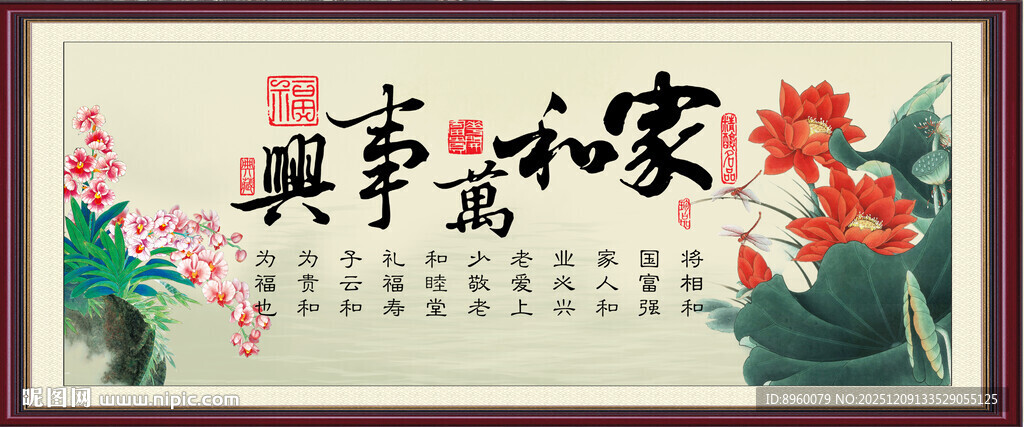 家和萬事興
福
精緻名品
典藏
将相和
国富强
家人和
业必兴
老爱上
少敬老
和睦堂
礼福寿
子云和
为贵和
为福也
昵图网 www.nipic.com
ID:8960079 NO:20251209133529055125